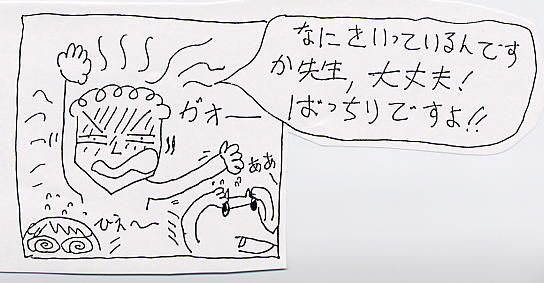 なにをいっているんです
か先生,大丈夫!
ばっちりですよ!!
ガオー
ああ
ひえ〜